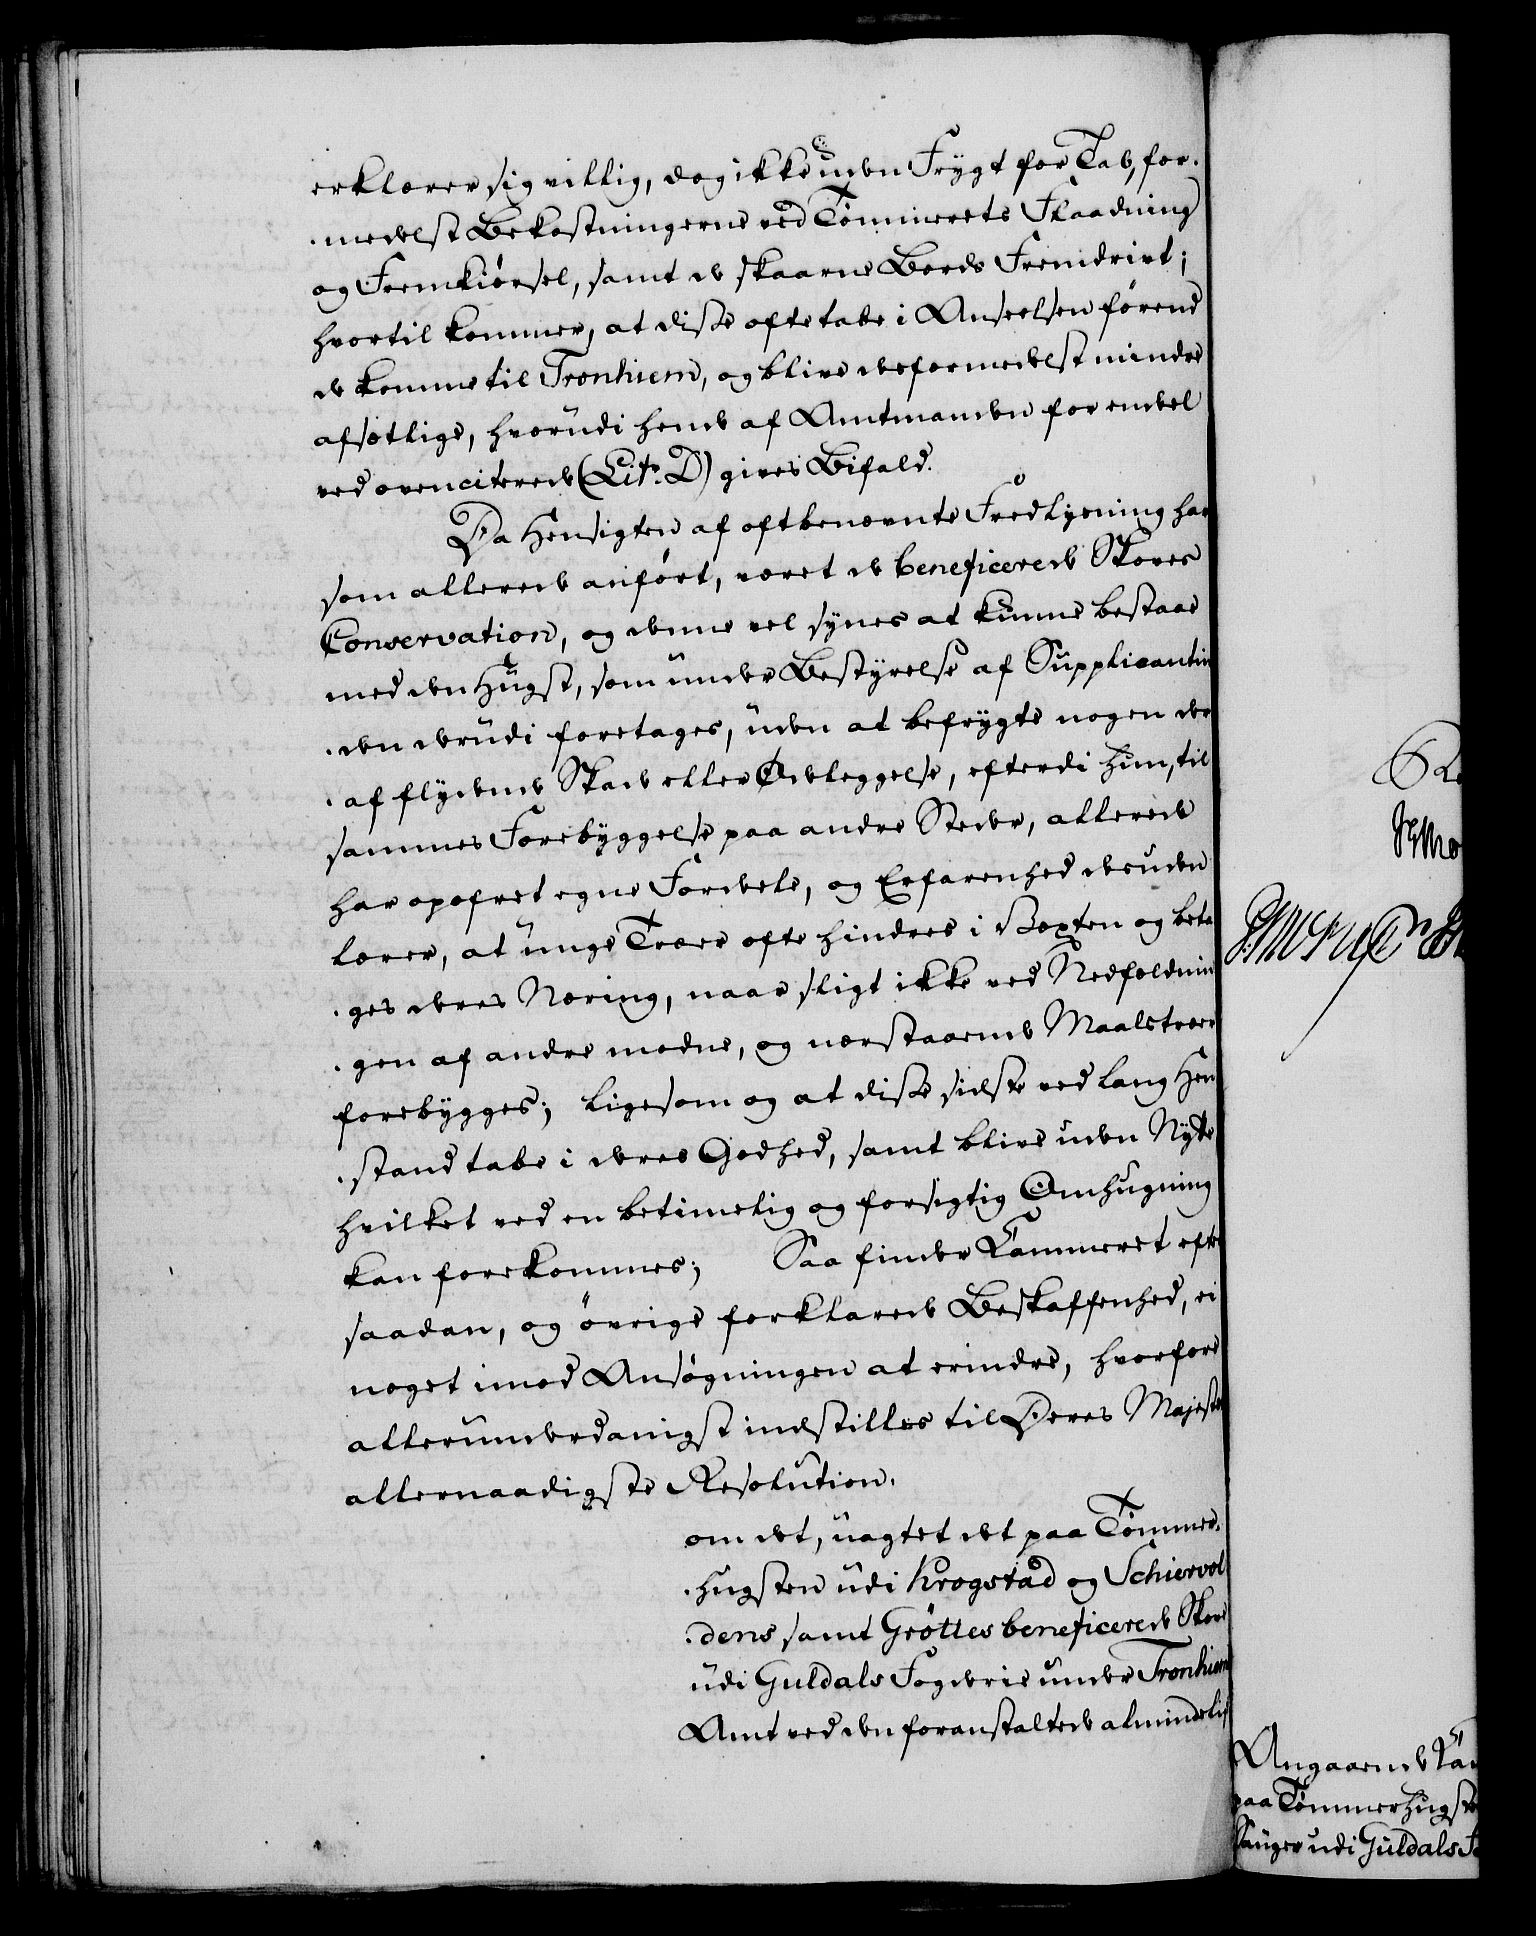 erklærer sig villig, dog ikke uden Frygt for Tab, for-
-medelst Bekostningerne ved Tømmerets Flaadning
og Fremkiørsel, samt de skaarne Bords Fremdrivt;
hvortil kommer, at disse ofte tabe i Anseelsen førend
de komme til Tronhiem, og blive deformedelst mindre
afsætlige, hvorudi hende af Amtmanden for endeel
ved ovenciterede (Litr. D) gives Bifald.
Da Hensigten af oftbenævnte Fredlysning har
som allerede anført, været de beneficerede Skoves
Conservation, og denne vel synes at kunne bestaae
med den Hugst, som under Bestyrelse af Supplicantin
-den derudi foretages, uden at befrygte nogen der
-af flydende Skade eller Ødeleggelse, efterdi hun, til
sammes Forebyggelse paa andre Steder, allerede
har opofret egne Fordeele, og Erfarenhed desuden
lærer, at unge Træer ofte hindres i Væxten og beta
-ges deres Næring, naar sligt ikke ved Nedfældnin
-gen af andre modne, og nærstaaende Maalstræer
forebygges; ligesom og at disse sidste ved lang Hen
-stand tabe i deres Godhed, samt blive uden Nytte
hvilket ved en betimelig og forsigtig Omhugning
kan forekommes; Saa finder Kammeret efter
saadan, og øvrige forklarede Beskaffenhed, ei
noget imod Ansøgningen at erindre, hvorfore
allerunderdanigst indstilles til Deres Majestæ
allernaadigste Resolution.
om det, uagtet det paa Tømmer-
-hugsten udi Krogstad og Schiervol
-dens samt Grøttes beneficerede Skove
udi Guldals Fogderie under Tronhiem
Amt ved den foranstaltede almindelig
Angaaende
paa Tømmerhugste
udi Guldals